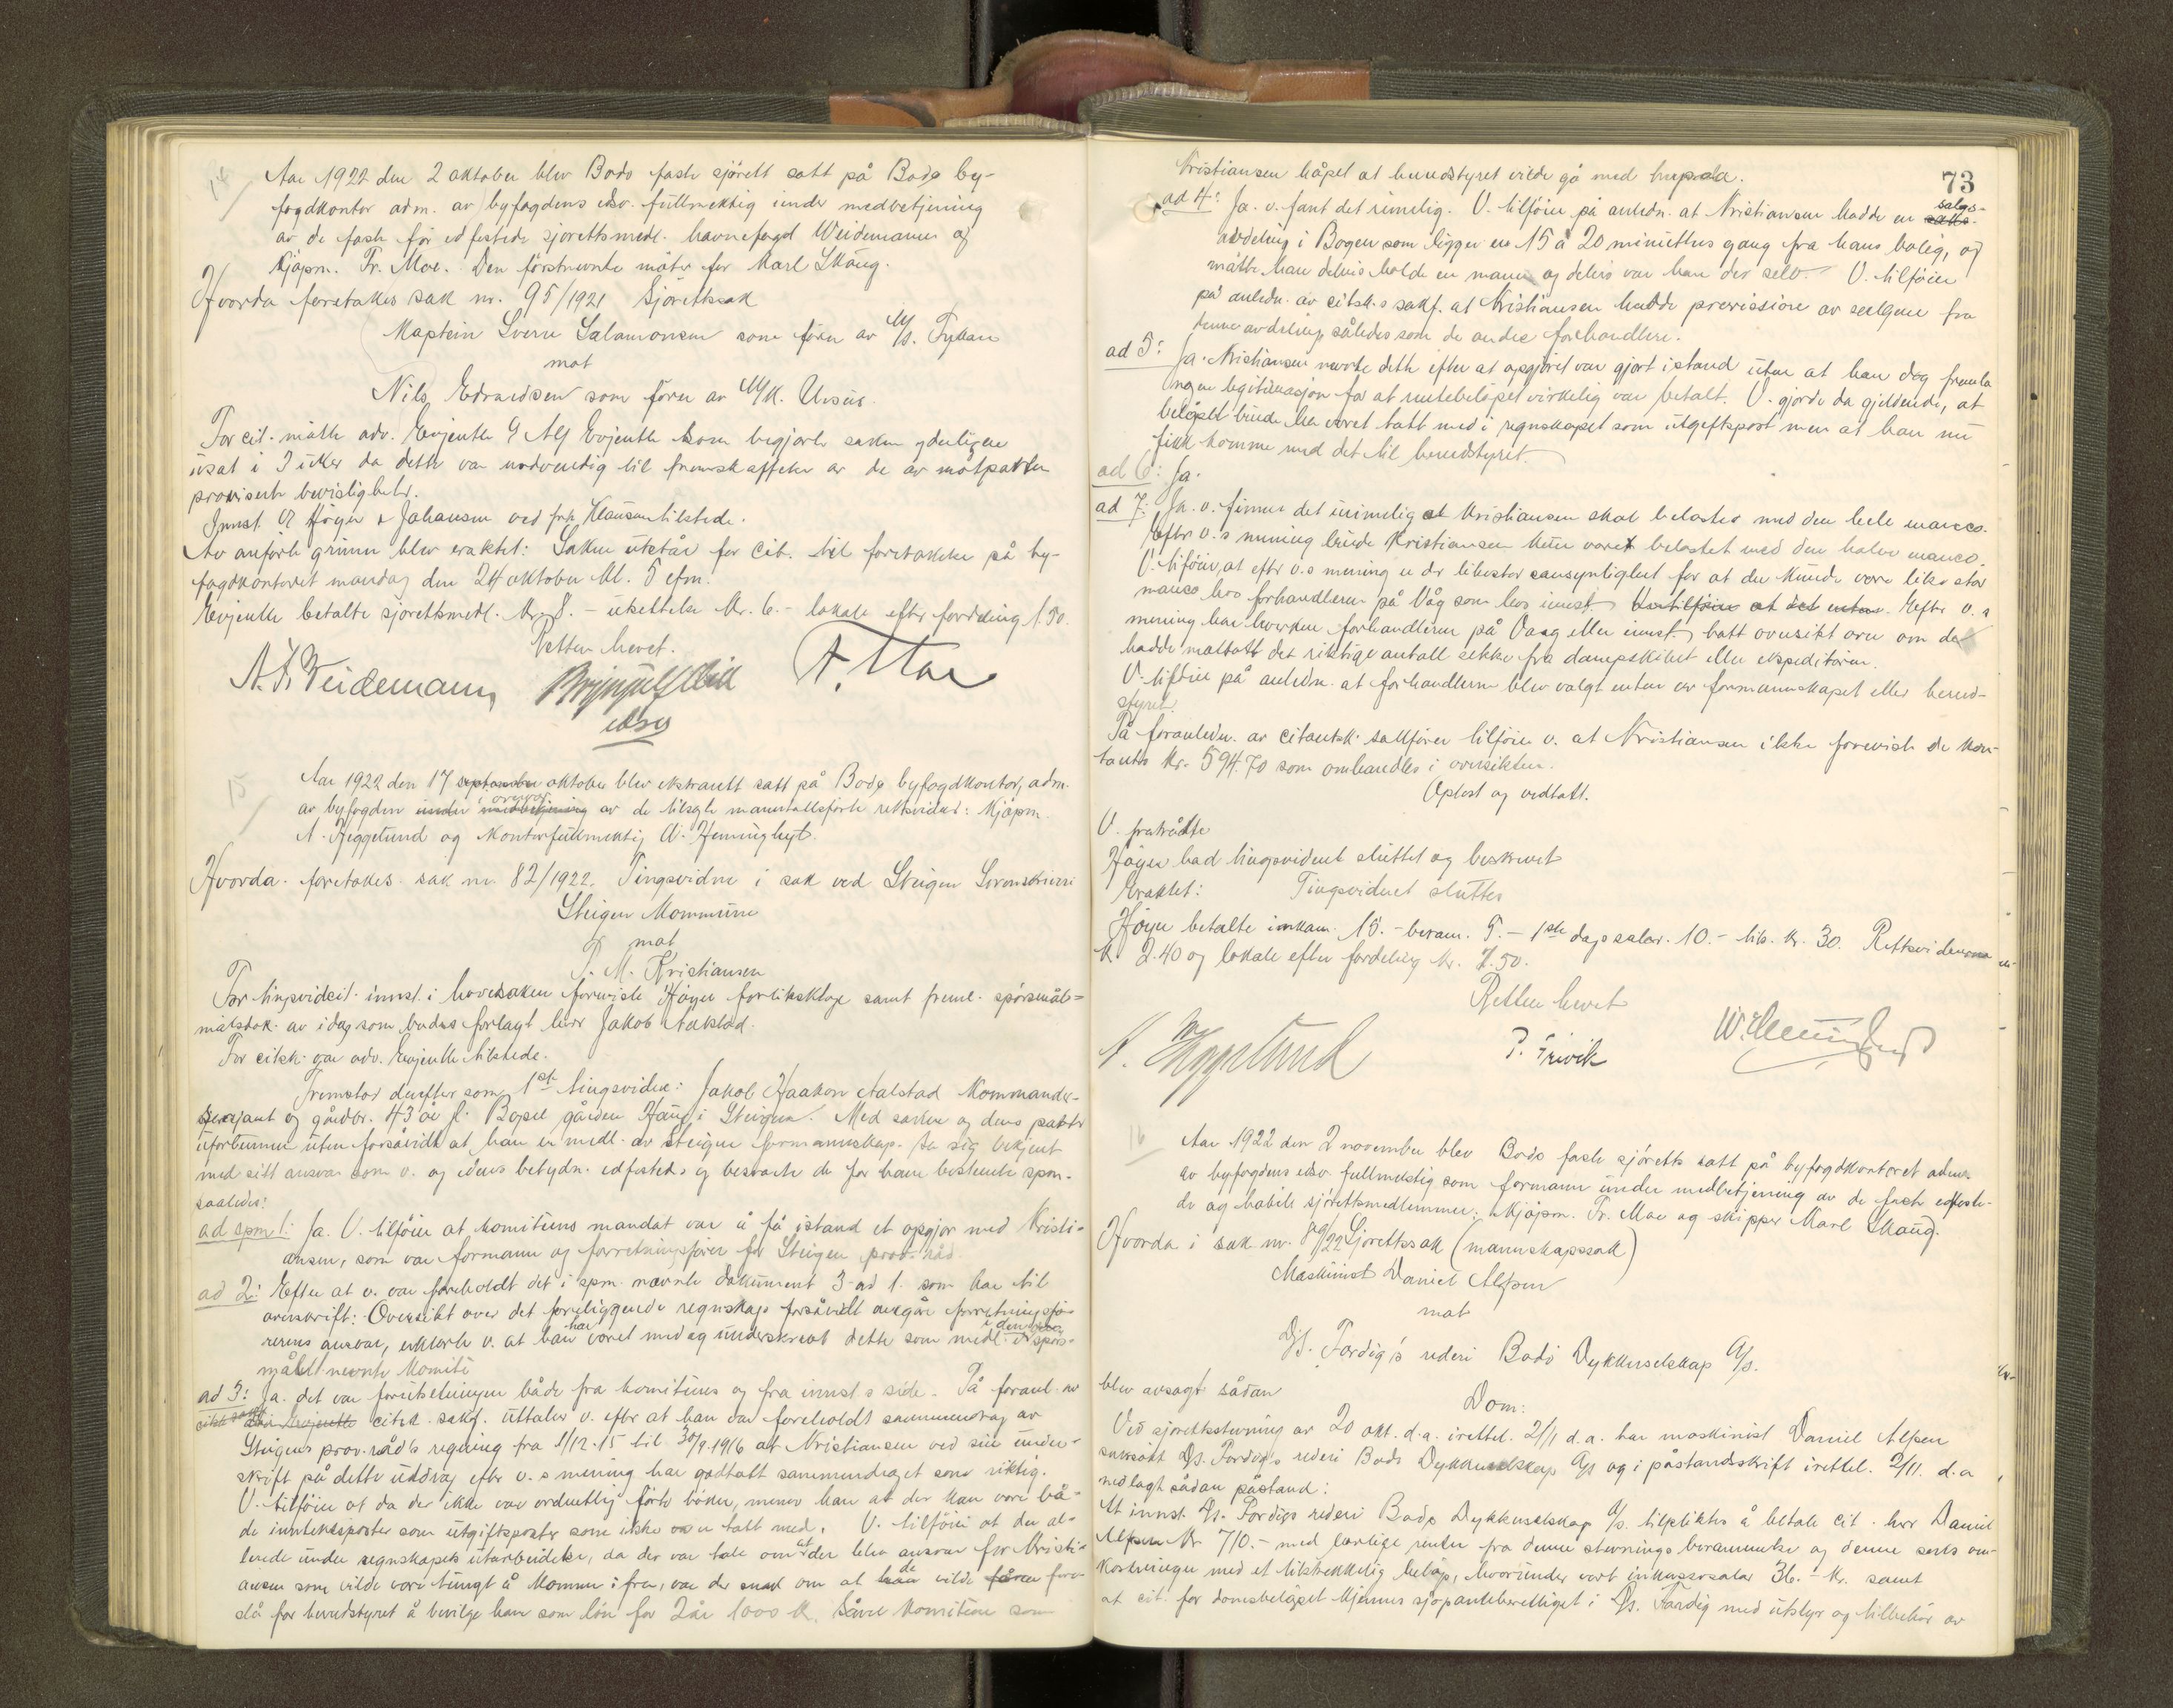 14
Aar 1922 den 2 oktober blev Bodø faste sjörett satt på Bodø by-
fogdkontor adm. av byfogdens edsv. fullmektig under medbetjening
av de faste før edfestede sjørettsmedl. havnefogd Weidemann og
kjøpm. Fr. Moe. Den förstnevnte møter for Karl Skaug.
Hvorda foretakes sak nr. 95/1921 Sjörettssak
Kaptein Sverre Salamonsen som fører av M/S. Fykan
mot
Nils Edvardsen som fører av M/K. Ursus.
For cit. møtte adv. Evjenth v/ Alf Evjenth som begjærte saken yderligere
utsat i 3 uker da dette var nødvendig til fremskaffelse av de av motparten
proviserte bevisligheter.
Innst. v/ Höyer & Johansen ved frk. Klausen tilstede.
Av anförte grunn blev eraktet: Saken utstår for cit. til foretakelse på by-
fogdkontoret mandag den 24 oktober kl. 5 efm.
Evjenth betalte sjørettsmedl. kr. 8.- utsettelse kr. 6.- lokale efter fordeling 1.50.
Retten hevet.
A. F. Weidemann Brynjulf Lied F. Moe
edsv
15
Aar 1922 den 17 september oktober blev ekstrarett satt på Bodø byfogdkontor, adm.
av byfogden under medbetjening overvær av de tilsagte manntallsførte rettsvidner: Kjøpm.
A. Heggelund og kontorfullmektig W. Henninghut.
Hvorda foretakes sak nr. 82/1922. Tingsvidne i sak ved Steigen Sorenskriveri
Steigen Kommune
mot
P. M. Kristiansen
For tingsvidcit. innst. i hovedsaken forviste Höyer forliksklage samt freml. spørsmål-
målsdok. av idag som bedes forlagt herr Jakob Aalstad.
For citsk. var adv. Evjenth tilstede.
Fremstod derefter som 1ste tingsvidne: Jakob Haakon Aalstad kommander-
sersjant og gårdbr. 43 år f. Bopel gården Haug i Steigen. Med saken og dens parter
uforbunnen uten forsåvidt at han er medl. av Steigen formannskap. Sa sig bekjent
med sitt ansvar som v. og edens betydn. edfestedes og besvarte de for ham bestemte spm.
saaledes:
ad spm 1: Ja. V. tilföier at komiteens mandat var å få istand et opgjør med Kristi-
ansen, som var formann og forretningsfører for Steigen prov. råd.
ad 2: Efter at v. var foreholdt det i spm. nævnte dokument 3 ad 1. som har til
overskrift: Oversikt over det foreliggende regnskap forsåvidt angår forretningsfö-
rerens ansvar, erklærte v. at han har været med og underskrevet dette som medl. i den i spørs-
målet nevnte komité
ad 3: Ja. det var forutsetningen både fra komiteens og fra innst.s side. På foranl. av
citsk. sakf. uttaler v. efter at han var foreholdt sammendrag av
Steigens prov. råd's regning fra 1/12.15 til 30/9.1916 at Kristiansen ved sin under-
skrift på dette uddrag efter v.s mening har godtatt sammendraget som riktig.
V. tilföier at da der ikke var ordentlig førte bøker, mener han at der kan være bå-
de inntektsposter som utgiftsposter som ikke var tatt med. V. tilföier at der al-
lerede under regnskapets utarbeidelse, da der var tale om at der blev ansvar for Kristi-
ansen som vilde være tungt å komme ifra, var der snak om at han de vilde fore-
slå for herredstyret å bevilge ham som lön for 2 år 1000 kr. Såvel komiteen som
73
Kristiansen håpet at herredstyret vilde gå med herpaa.
ad 4: Ja. v. fant det rimelig. V. tilföier på anledn. at Kristiansen hadde en salgs-
avdeling i Bogen som ligger en 15 à 20 minutters gang fra hans bolig, og
måtte han delvis holde en mann og delvis var han der selv. V. tilföier
på anledn. av citsk.s sakf. at Kristiansen hadde provisjon av salgene fra
denne avdeling således som de andre forhandlere.
ad 5: Ja. Kristiansen nevnte dette efter at opgjøret var gjort istand uten at han dog fremla
nogen legitimasjon for at rentebeløpet virkelig var betalt. V. gjorde da gjeldende, at
beløpet burde ha været tatt med i regnskapet som utgiftspost men at han nu
fikk komme med det til herredstyret.
ad 6: Ja.
ad 7: Ja. v. finner det urimelig at Kristiansen skal belastes med den hele manco.
Efter v.s mening burde Kristiansen kun været belastet med den halve manco.
V. tilföier, at efter v.s mening er der like stor sansynlighet for at der kunde være like stor
manco hos forhandleren på Våg som hos innst. Efter v.s
mening har hverken forhandleren på Vaag eller innst. hatt oversikt over om de
hadde mottatt det riktige antall sekke fra dampskibet eller ekspeditøren.
V. tilföier på anledn. at forhandleren blev valgt enten av formannskapet eller herred-
styret.
På foranledn. av citantsk. sakfører tilföier v. at Kristiansen ikke foreviste de kon-
tante kr. 594.70 som omhandles i oversikten.
Oplest og vedtatt.
V. fratrådte
Höyer bad tingsvidnet sluttet og beskrevet
Eraktet: Tingsvidnet sluttes
Höyer betalte innkam. 15.- beram. 5.- 1ste dags salær. 10.- tils. kr. 30. Rettsvidnerne
k 2.40 og lokale efter fordeling kr. 7.50.
Retten hevet
A. Heggelund P. Trivik W. Henninghut
16
Aar 1922 den 2 november blev Bodø faste sjøretts satt på byfogdkontoret adm.
av byfogdens edsv. fullmektig som formann under medbetjening av de faste edfeste-
de og habile sjørettsmedlemmer: Kjøpm. Fr. Moe og skipper Karl Skaug.
Hvorda i sak nr. 89/22 Sjørettssak (mannskapssak)
Maskinist Daniel Alfsen
mot
D/S. Fardig's rederi Bodö Dykkerselskap A/S.
blev avsagt sådan
Dom:
Ved sjørettsstevning av 20 okt. d.a. irettel. 2/11 d.a. har maskinist Daniel Alfsen
saksøkt D/S. Fardig's rederi Bodö Dykkerselskap A/S og i påstandskrift irettel. 2/11. d.a
nedlagt sådan påstand:
At innst. D/s. Fardigs rederi Bodø Dykkerselskap A/S. tilpliktes å betale cit. herr Daniel
Alfsen Kr. 710.- med lovlige renter fra denne stevnings berammelse og denne saks om-
kostninger med et tilstrekkelig beløp, hvorunder vort inkassosalær 36.- kr. samt
at cit. for domsbeløpet kjennes sjøpanteberettiget i D/s. Fardig med utstyr og tilbehør av